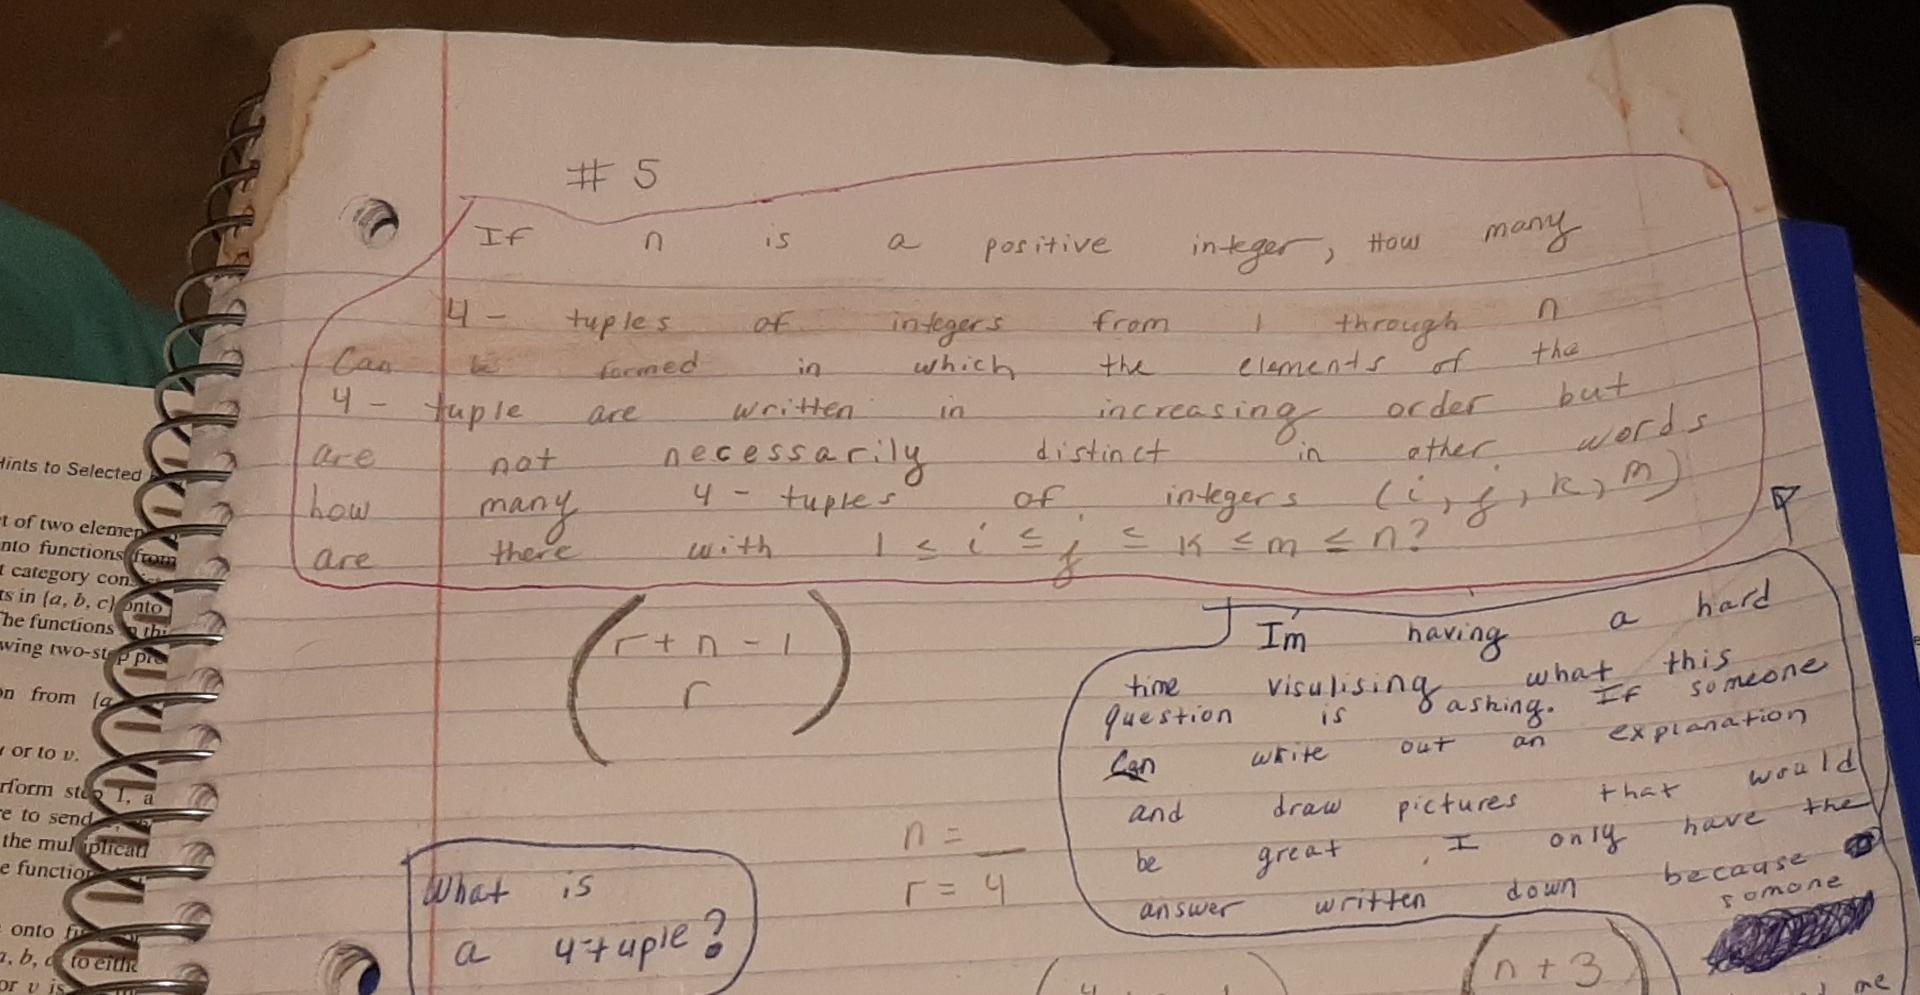 # 5
If n is a positive integer, How many
4 - tuples of integers from 1 through n
Can be formed in which the elements of the
4 - tuple are written in increasing order but
are not necessarily distinct in other words
how many 4 - tuples of integers (i, j, k, m)
are there with 1 ≤ i ≤ j ≤ k ≤ m ≤ n?
(r + n - 1
r)
I'm having a hard
time visulising what this
question is asking. If someone
Can write out an explanation
and draw pictures that would
be great. I only have the
answer written down because
somone
me
n = __
r = 4
What is
a 4-tuple?
(n + 3
Hints to Selected
of two elemen
functions from
category
ts in {a, b, c} onto
The functions
wing two-step
on from {a
or to v.
rform step 1, a
e to send
the multiplicati
e function
onto
to eithe
or v is